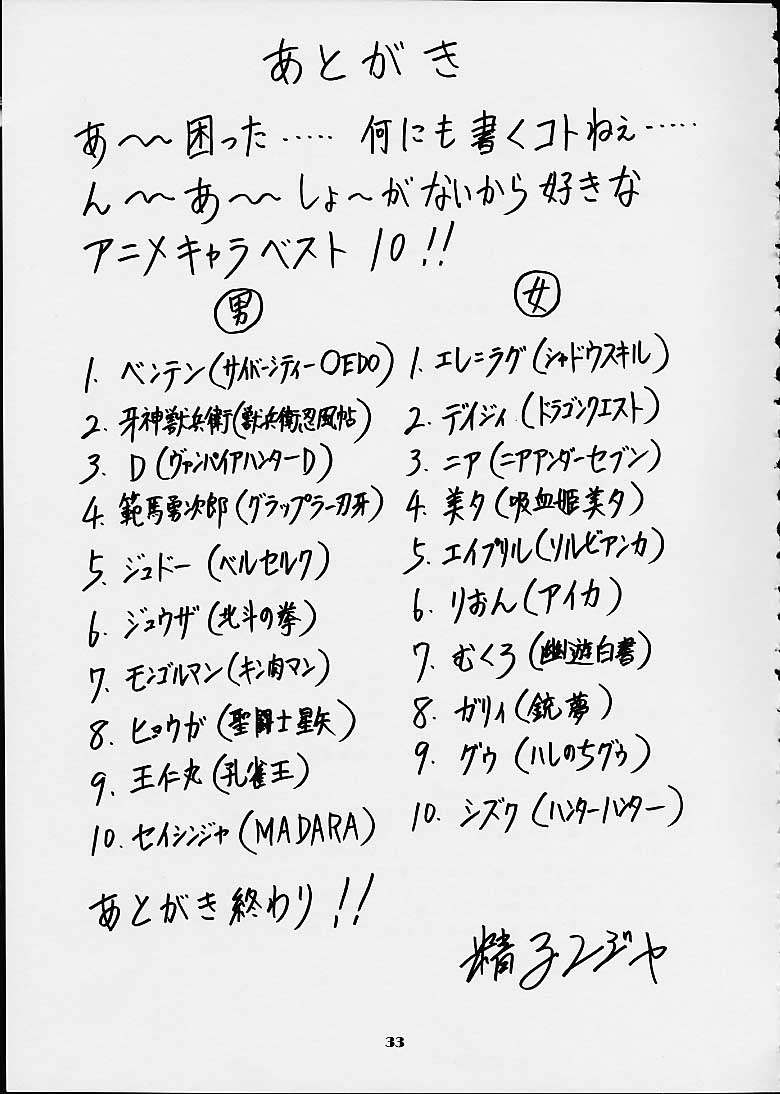 あとがき
あ〜〜困った‥‥‥ 何にも書くコトねぇ‥‥‥
ん〜〜あ〜〜しょ〜がないから好きな
アニメキャラベスト10!!
男
1. ベンテン(サイバーシティーOEDO)
2. 牙神獣兵衛(獣兵衛忍風帖)
3. D(ヴァンパイアハンターD)
4. 範馬勇次郎(グラップラー刃牙)
5. ジュドー(ベルセルク)
6. ジュウザ(北斗の拳)
7. モンゴルマン(キン肉マン)
8. ヒョウガ(聖闘士星矢)
9. 王仁丸(孔雀王)
10. セイシンジャ(MADARA)
女
1. エレ=ラグ(シャドウスキル)
2. デイジィ(ドラゴンクエスト)
3. ニア(ニアアンダーセブン)
4. 美夕(吸血姫美夕)
5. エイプリル(ソルビアンカ)
6. りおん(アイカ)
7. むくろ(幽遊白書)
8. ガリィ(銃夢)
9. グゥ(ハレのちグゥ)
10. シズク(ハンターハンター)
あとがき終わり!!
33